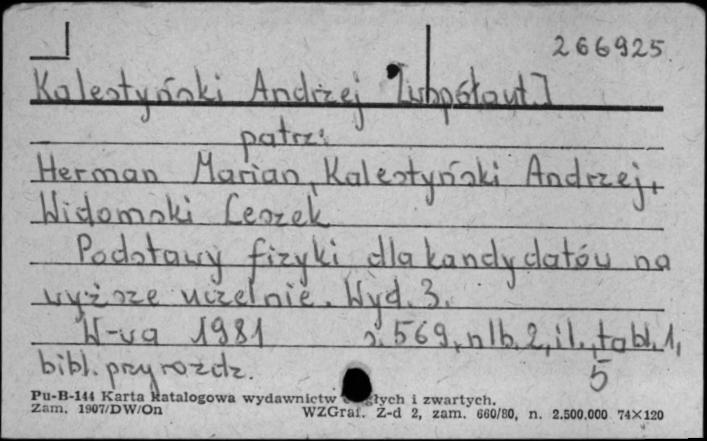 266925
Kalestyński Andrzej [współaut.]
patrz:
Herman Marian, Kalestyński Andrzej,
Widomski Leszek
Podstawy fizyki dla kandydatów na
wyższe uczelnie. Wyd. 3.
W-wa 1981 s. 569, nlb. 2, il., tabl. 1,
bibl. przy rozdz. 5
Pu-B-144 Karta katalogowa wydawnictw ciągłych i zwartych.
Zam. 1907/DW/On WZGraf. Z-d 2, zam. 660/80, n. 2.500.000 74×120